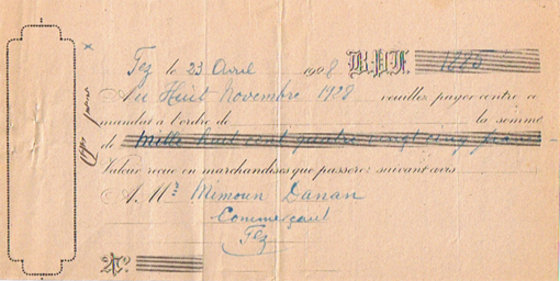 Fez, le 23 Avril 1928 B.P.F. 1885
Au Huit Novembre 1928 veuillez payer contre ce
mandat à l'ordre de la somme
de Mille huit cent quatre vingt cinq francs
Valeur reçue en marchandises que passerez suivant avis
A Mr Mimoun Danan
Commerçant
Fez
No